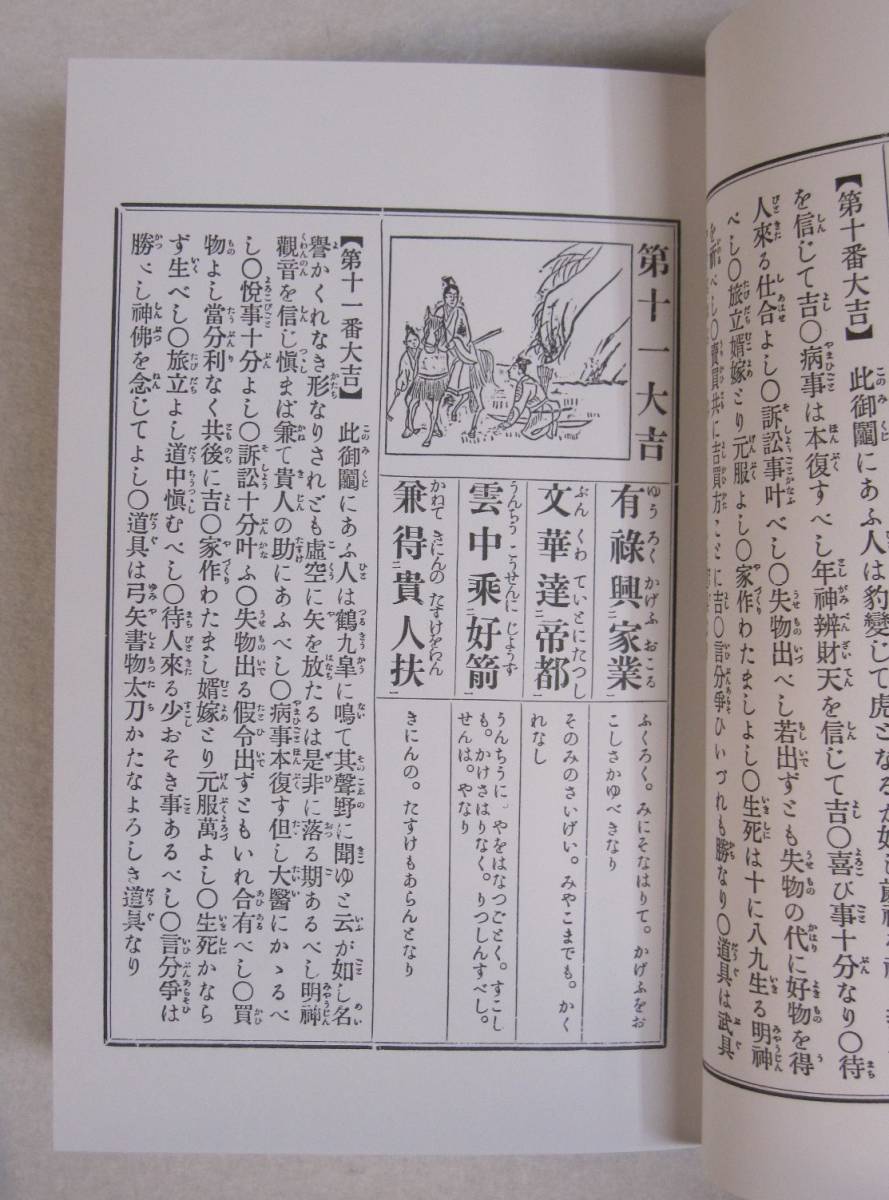 【第十番大吉】 此御鬮にあふ人は豹變じて虎となるが如し
を信じて吉〇病事は本復すべし年神辨財天を信じて吉〇喜び事十分なり〇待
人來る仕合よし〇訴訟事叶べし〇失物出べし若出ずとも失物の代に好物を得
べし〇旅立婿嫁とり元服よし〇家作わたましよし〇生死は十に八九生る明神
を祈べし〇賣買共に吉買方ことに吉〇言分爭ひいづれも勝なり〇道具は武具
第十一大吉
ゆうろくかげふおこる
有祿興家業
ぶんくわていとにたつし
文華達帝都
うんちうこうせんにじようず
雲中乘好箭
かねてきにんのたすけをゑん
兼得貴人扶
ふくろく。みにそなはりて。かげふをお
こしさかゆべきなり
そのみのさいげい。みやこまでも。かく
れなし
うんちうに。やをはなつごとく。すこし
も。かけさはりなく。りつしんすべし。
せんは。やなり
きにんの。たすけもあらんとなり
【第十一番大吉】 此御鬮にあふ人は鶴九皐に鳴て其聲野に聞ゆと云が如し名
譽かくれなき形なりされども虛空に矢を放たるは是非に落る期あるべし明神
觀音を信じ愼まば兼て貴人の助にあふべし〇病事本復す但し大醫にかゝるべ
し〇悅事十分よし〇訴訟十分叶ふ〇失物出る假令出ずともいれ合有べし〇買
物よし當分利なく共後に吉〇家作わたまし婿嫁とり元服萬よし〇生死かなら
ず生べし〇旅立よし道中愼むべし〇待人來る少おそき事あるべし〇言分爭は
勝べし神佛を念じてよし〇道具は弓矢書物太刀かたなよろしき道具なり